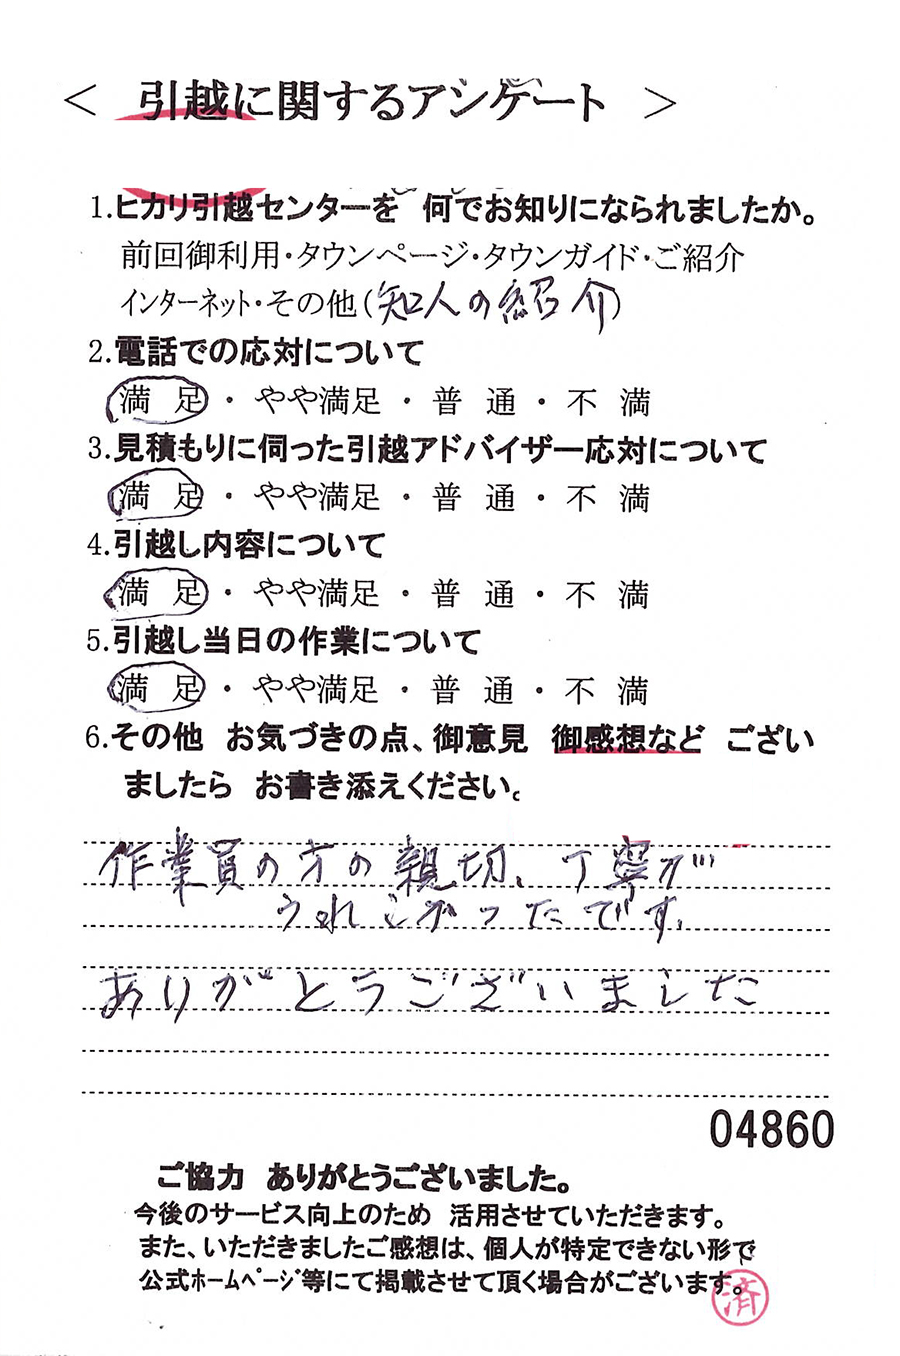 ＜ 引越に関するアンケート ＞
1.ヒカリ引越センターを 何でお知りになられましたか。
前回御利用・タウンページ・タウンガイド・ご紹介
インターネット・その他(知人の紹介)
2.電話での応対について
満 足 ・ やや満足 ・ 普 通 ・ 不 満
3.見積もりに伺った引越アドバイザー応対について
満 足 ・ やや満足 ・ 普 通 ・ 不 満
4.引越し内容について
満 足 ・ やや満足 ・ 普 通 ・ 不 満
5.引越し当日の作業について
満 足 ・ やや満足 ・ 普 通 ・ 不 満
6.その他 お気づきの点、御意見 御感想など ござい
ましたら お書き添えください。
作業員の方の親切、丁寧が
うれしかったです。
ありがとうございました
04860
ご協力 ありがとうございました。
今後のサービス向上のため 活用させていただきます。
また、いただきましたご感想は、個人が特定できない形で
公式ホームページ等にて掲載させて頂く場合がございます。
済